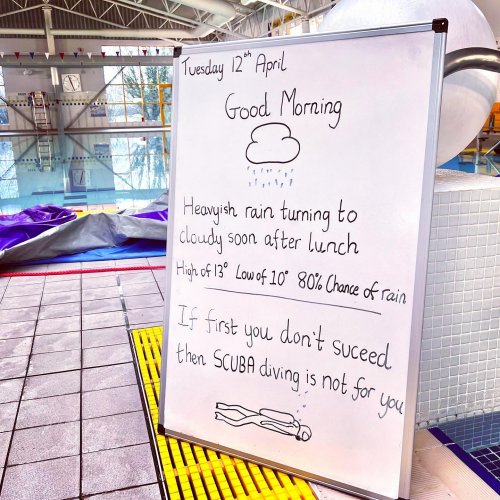 Tuesday 12th April
Good Morning
Heavyish rain turning to
cloudy soon after lunch
High of 13° Low of 10° 80% Chance of rain
If first you don't suceed
then SCUBA diving is not for you